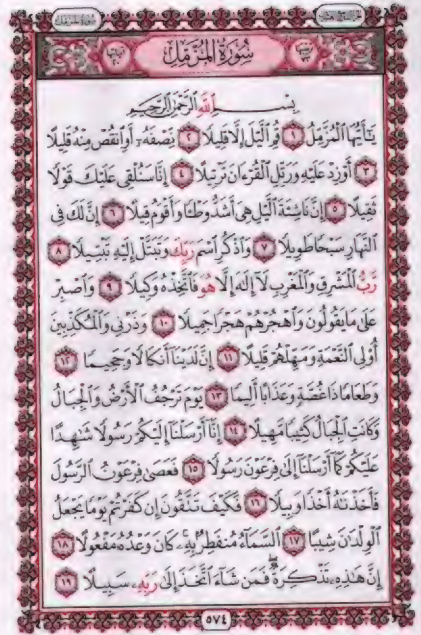 سُورَةُ المُزَّمِّل
بِسۡمِ ٱللَّهِ ٱلرَّحۡمَٰنِ ٱلرَّحِيمِ
يَٰٓأَيُّهَا ٱلۡمُزَّمِّلُ ١ قُمِ ٱلَّيۡلَ إِلَّا قَلِيلٗا ٢ نِّصۡفَهُۥٓ أَوِ ٱنقُصۡ مِنۡهُ قَلِيلًا
٣ أَوۡ زِدۡ عَلَيۡهِ وَرَتِّلِ ٱلۡقُرۡءَانَ تَرۡتِيلًا ٤ إِنَّا سَنُلۡقِي عَلَيۡكَ قَوۡلٗا
ثَقِيلًا ٥ إِنَّ نَاشِئَةَ ٱلَّيۡلِ هِيَ أَشَدُّ وَطۡـٔٗا وَأَقۡوَمُ قِيلًا ٦ إِنَّ لَكَ فِي
ٱلنَّهَارِ سَبۡحٗا طَوِيلٗا ٧ وَٱذۡكُرِ ٱسۡمَ رَبِّكَ وَتَبَتَّلۡ إِلَيۡهِ تَبۡتِيلٗا ٨
رَّبُّ ٱلۡمَشۡرِقِ وَٱلۡمَغۡرِبِ لَآ إِلَٰهَ إِلَّا هُوَ فَٱتَّخِذۡهُ وَكِيلٗا ٩ وَٱصۡبِرۡ
عَلَىٰ مَا يَقُولُونَ وَٱهۡجُرۡهُمۡ هَجۡرٗا جَمِيلٗا ١٠ وَذَرۡنِي وَٱلۡمُكَذِّبِينَ
أُوْلِي ٱلنَّعۡمَةِ وَمَهِّلۡهُمۡ قَلِيلًا ١١ إِنَّ لَدَيۡنَآ أَنكَالٗا وَجَحِيمٗا ١٢
وَطَعَامٗا ذَا غُصَّةٖ وَعَذَابًا أَلِيمٗا ١٣ يَوۡمَ تَرۡجُفُ ٱلۡأَرۡضُ وَٱلۡجِبَالُ
وَكَانَتِ ٱلۡجِبَالُ كَثِيبٗا مَّهِيلًا ١٤ إِنَّآ أَرۡسَلۡنَآ إِلَيۡكُمۡ رَسُولٗا شَٰهِدًا
عَلَيۡكُمۡ كَمَآ أَرۡسَلۡنَآ إِلَىٰ فِرۡعَوۡنَ رَسُولٗا ١٥ فَعَصَىٰ فِرۡعَوۡنُ ٱلرَّسُولَ
فَأَخَذۡنَٰهُ أَخۡذٗا وَبِيلٗا ١٦ فَكَيۡفَ تَتَّقُونَ إِن كَفَرۡتُمۡ يَوۡمٗا يَجۡعَلُ
ٱلۡوِلۡدَٰنَ شِيبًا ١٧ ٱلسَّمَآءُ مُنفَطِرُۢ بِهِۦۚ كَانَ وَعۡدُهُۥ مَفۡعُولًا ١٨
إِنَّ هَٰذِهِۦ تَذۡكِرَةٞۖ فَمَن شَآءَ ٱتَّخَذَ إِلَىٰ رَبِّهِۦ سَبِيلًا ١٩
٥٧٤